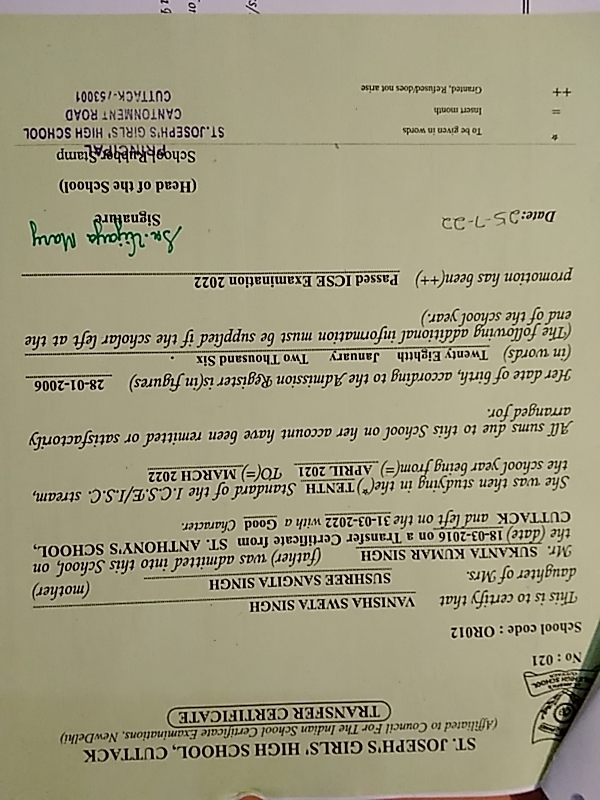 ST. JOSEPH'S GIRLS' HIGH SCHOOL, CUTTACK
(Affiliated to Council For The Indian School Certificate Examinations, NewDelhi)
TRANSFER CERTIFICATE
No : 021
School code : OR012
This is to certify that VANISHA SWETA SINGH
daughter of Mrs. SUSHREE SANGITA SINGH (mother)
Mr. SUKANTA KUMAR SINGH (father) was admitted into this School, on
the (date) 18-03-2016 on a Transfer Certificate from ST. ANTHONY'S SCHOOL,
CUTTACK and left on the 31-03-2022 with a Good Character.
She was then studying in the(*) TENTH Standard of the I.C.S.E/I.S.C. stream,
the school year being from(=) APRIL 2021 TO(=) MARCH 2022
All sums due to this School on her account have been remitted or satisfactorily
arranged for.
Her date of birth, according to the Admission Register is(in figures) 28-01-2006
(in words) Twenty Eighth January Two Thousand Six .
(The following additional information must be supplied if the scholar left at the
end of the school year.)
promotion has been(++) Passed ICSE Examination 2022
Date: 25-7-22
Sr. Vijaya Mary
Signature
(Head of the School)
School Rubber Stamp
PRINCIPAL
ST. JOSEPH'S GIRLS' HIGH SCHOOL
CANTONMENT ROAD
CUTTACK-753001
* To be given in words
= Insert month
++ Granted, Refused/does not arise